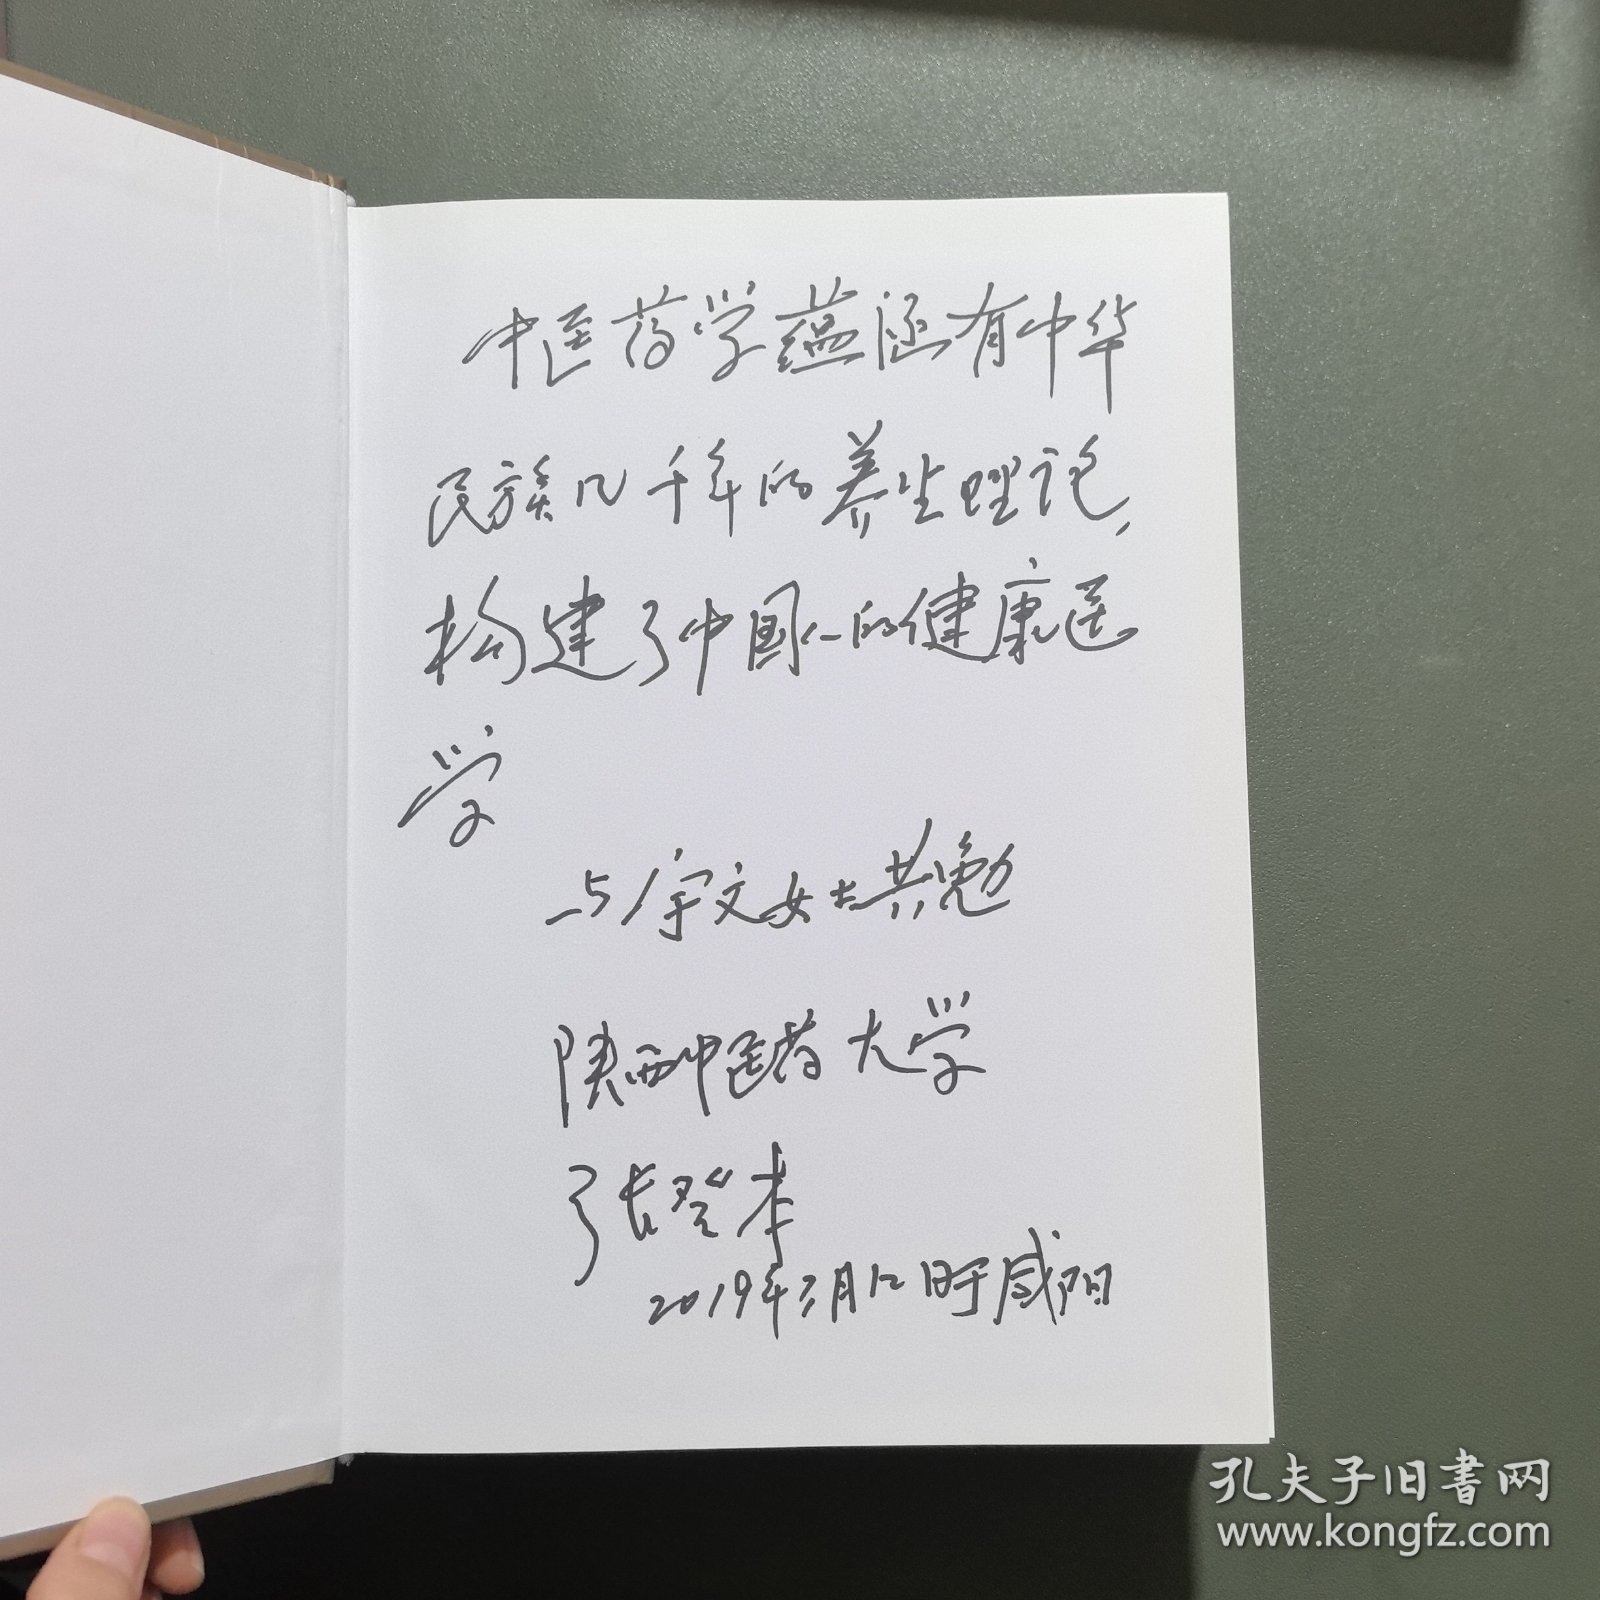 中医药学蕴涵有中华
民族几千年的养生理论,
构建了中国人的健康医
学
与宇文女士共勉
陕西中医药大学
张登本
2019年3月12日于咸阳
孔夫子旧书网
www.kongfz.com